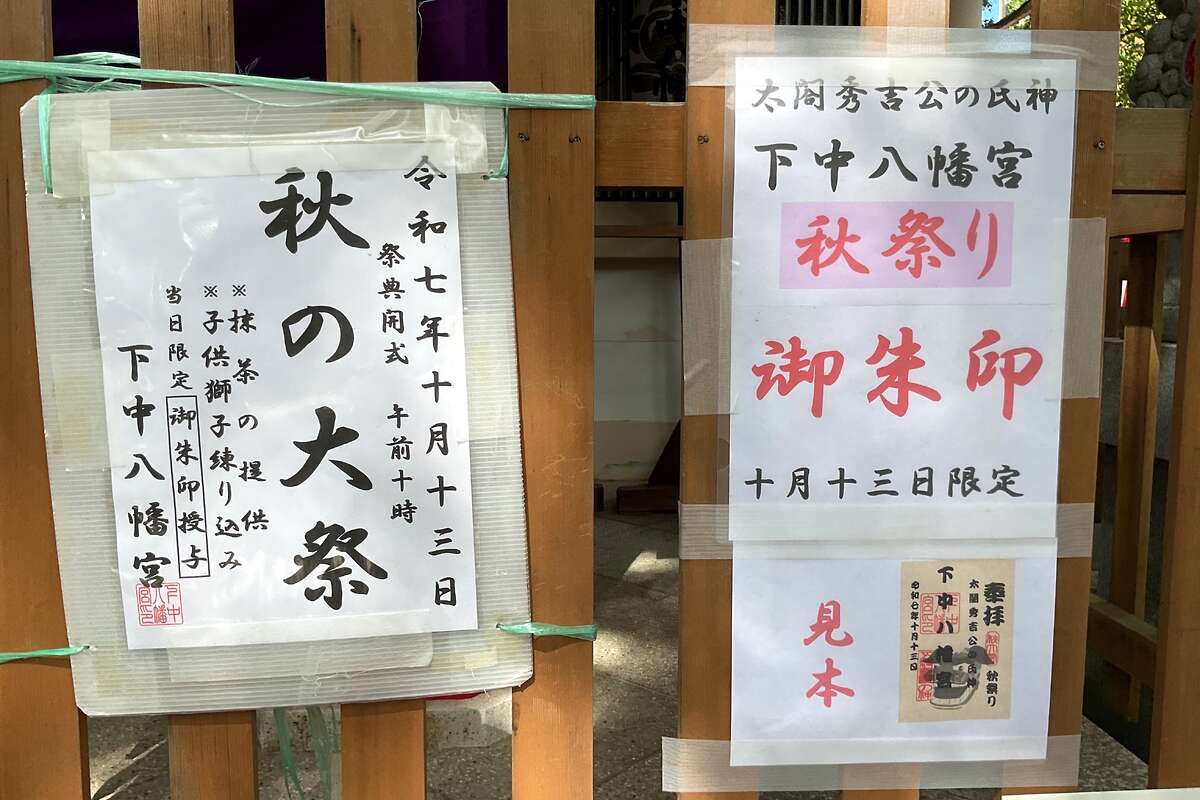 令和七年十月十三日
祭典開式 午前十時
秋の大祭
※抹茶の提供
※子供獅子練り込み
当日限定 御朱印授与
下中八幡宮
太閤秀吉公の氏神
下中八幡宮
秋祭り
御朱印
十月十三日限定
見本
奉拝
秋祭り
太閤秀吉公の氏神
下中八幡宮
令和七年十月十三日